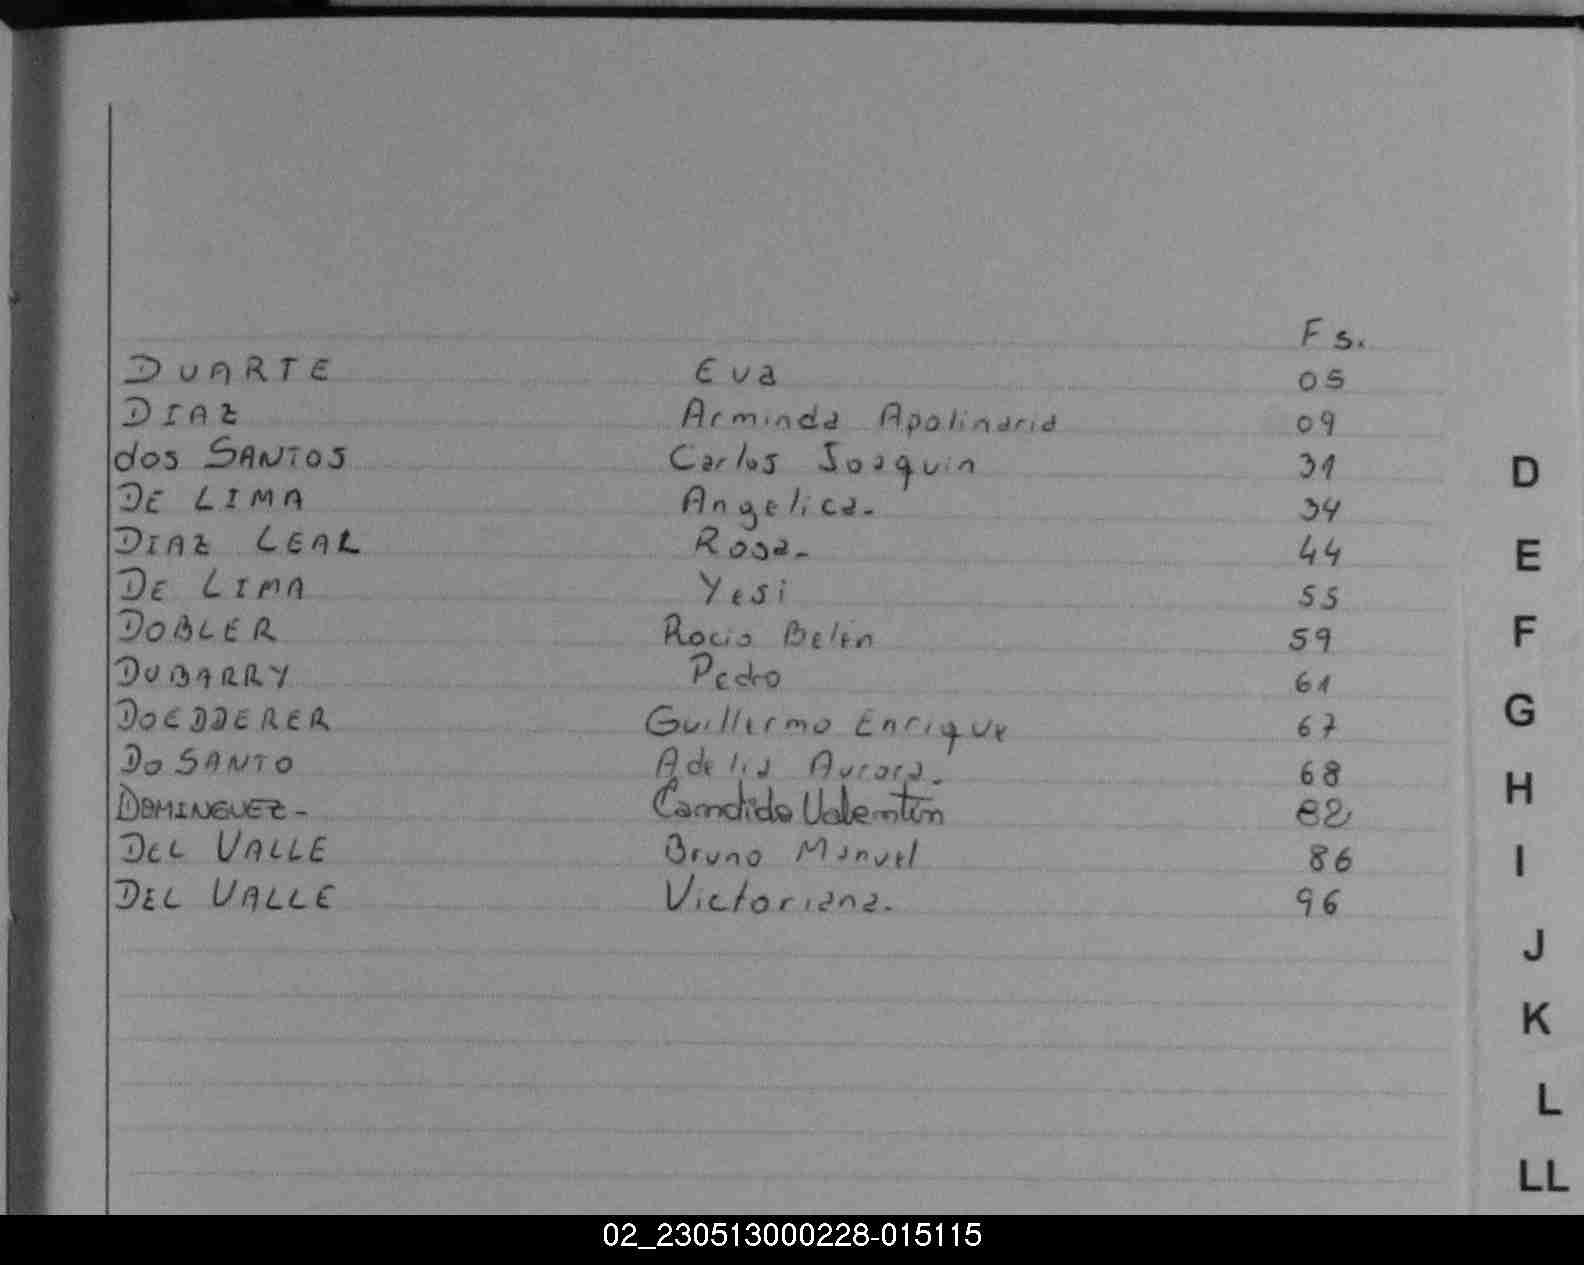 Fs.
DUARTE Eva 05
DIAZ Arminda Apolinaria 09
dos SANTOS Carlos Joaquin 31
DE LIMA Angelica. 34
DIAZ LEAL Rosa. 44
DE LIMA Yesi 55
DOBLER Rocio Belen 59
DUBARRY Pedro 61
DOEDDERER Guillermo Enrique 67
DO SANTO Adelia Aurora. 68
DOMINGUEZ- Candido Valentin 82
DEL VALLE Bruno Manuel 86
DEL VALLE Victoriana. 96
D
E
F
G
H
I
J
K
L
LL
02_230513000228-015115